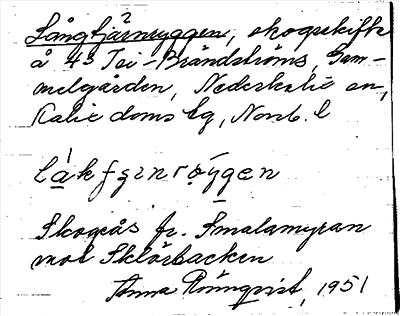 Långtjärnryggen, skogsskifte
å 43 Tei-Brändströms, Gam-
melgården, Nederkalix sn,
Kalix doms lg, Norrb. l
Skogsås fr. Smalamyran
mot Sklörbacken
Anna Rönnqvist, 1951